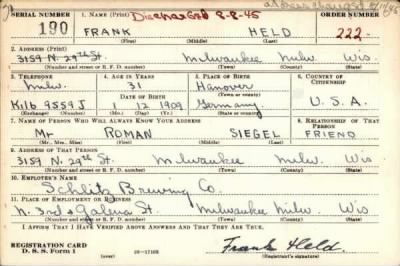 SERIAL NUMBER 1. NAME (Print) Discharged 8-8-45 ORDER NUMBER
190 FRANK HELD 222
(First) (Middle) (Last)
2. ADDRESS (Print)
3159 N. 29th St. Milwaukee Milw. Wis
(Number and street or R. F. D. number) (Town) (County) (State)
3. TELEPHONE 4. AGE IN YEARS 5. PLACE OF BIRTH 6. COUNTRY OF CITIZENSHIP
Milw. 31 Hanover
DATE OF BIRTH (Town or county)
Kilb 9559J 1 12 1909 Germany U.S.A.
(Exchange) (Number) (Mo.) (Day) (Yr.) (State or country)
7. NAME OF PERSON WHO WILL ALWAYS KNOW YOUR ADDRESS 8. RELATIONSHIP OF THAT PERSON
Mr ROMAN SIEGEL FRIEND
(Mr., Mrs., Miss) (First) (Middle) (Last)
9. ADDRESS OF THAT PERSON
3159 N. 29th St. Milwaukee Milw. Wis
(Number and street or R. F. D. number) (Town) (County) (State)
10. EMPLOYER'S NAME
Schlitz Brewing Co.
11. PLACE OF EMPLOYMENT OR BUSINESS
N. 3rd & Galena St. Milwaukee Milw Wis
(Number and street or R. F. D. number) (Town) (County) (State)
I AFFIRM THAT I HAVE VERIFIED ABOVE ANSWERS AND THAT THEY ARE TRUE.
REGISTRATION CARD
D. S. S. Form 1 Frank Held
(Registrant's signature)